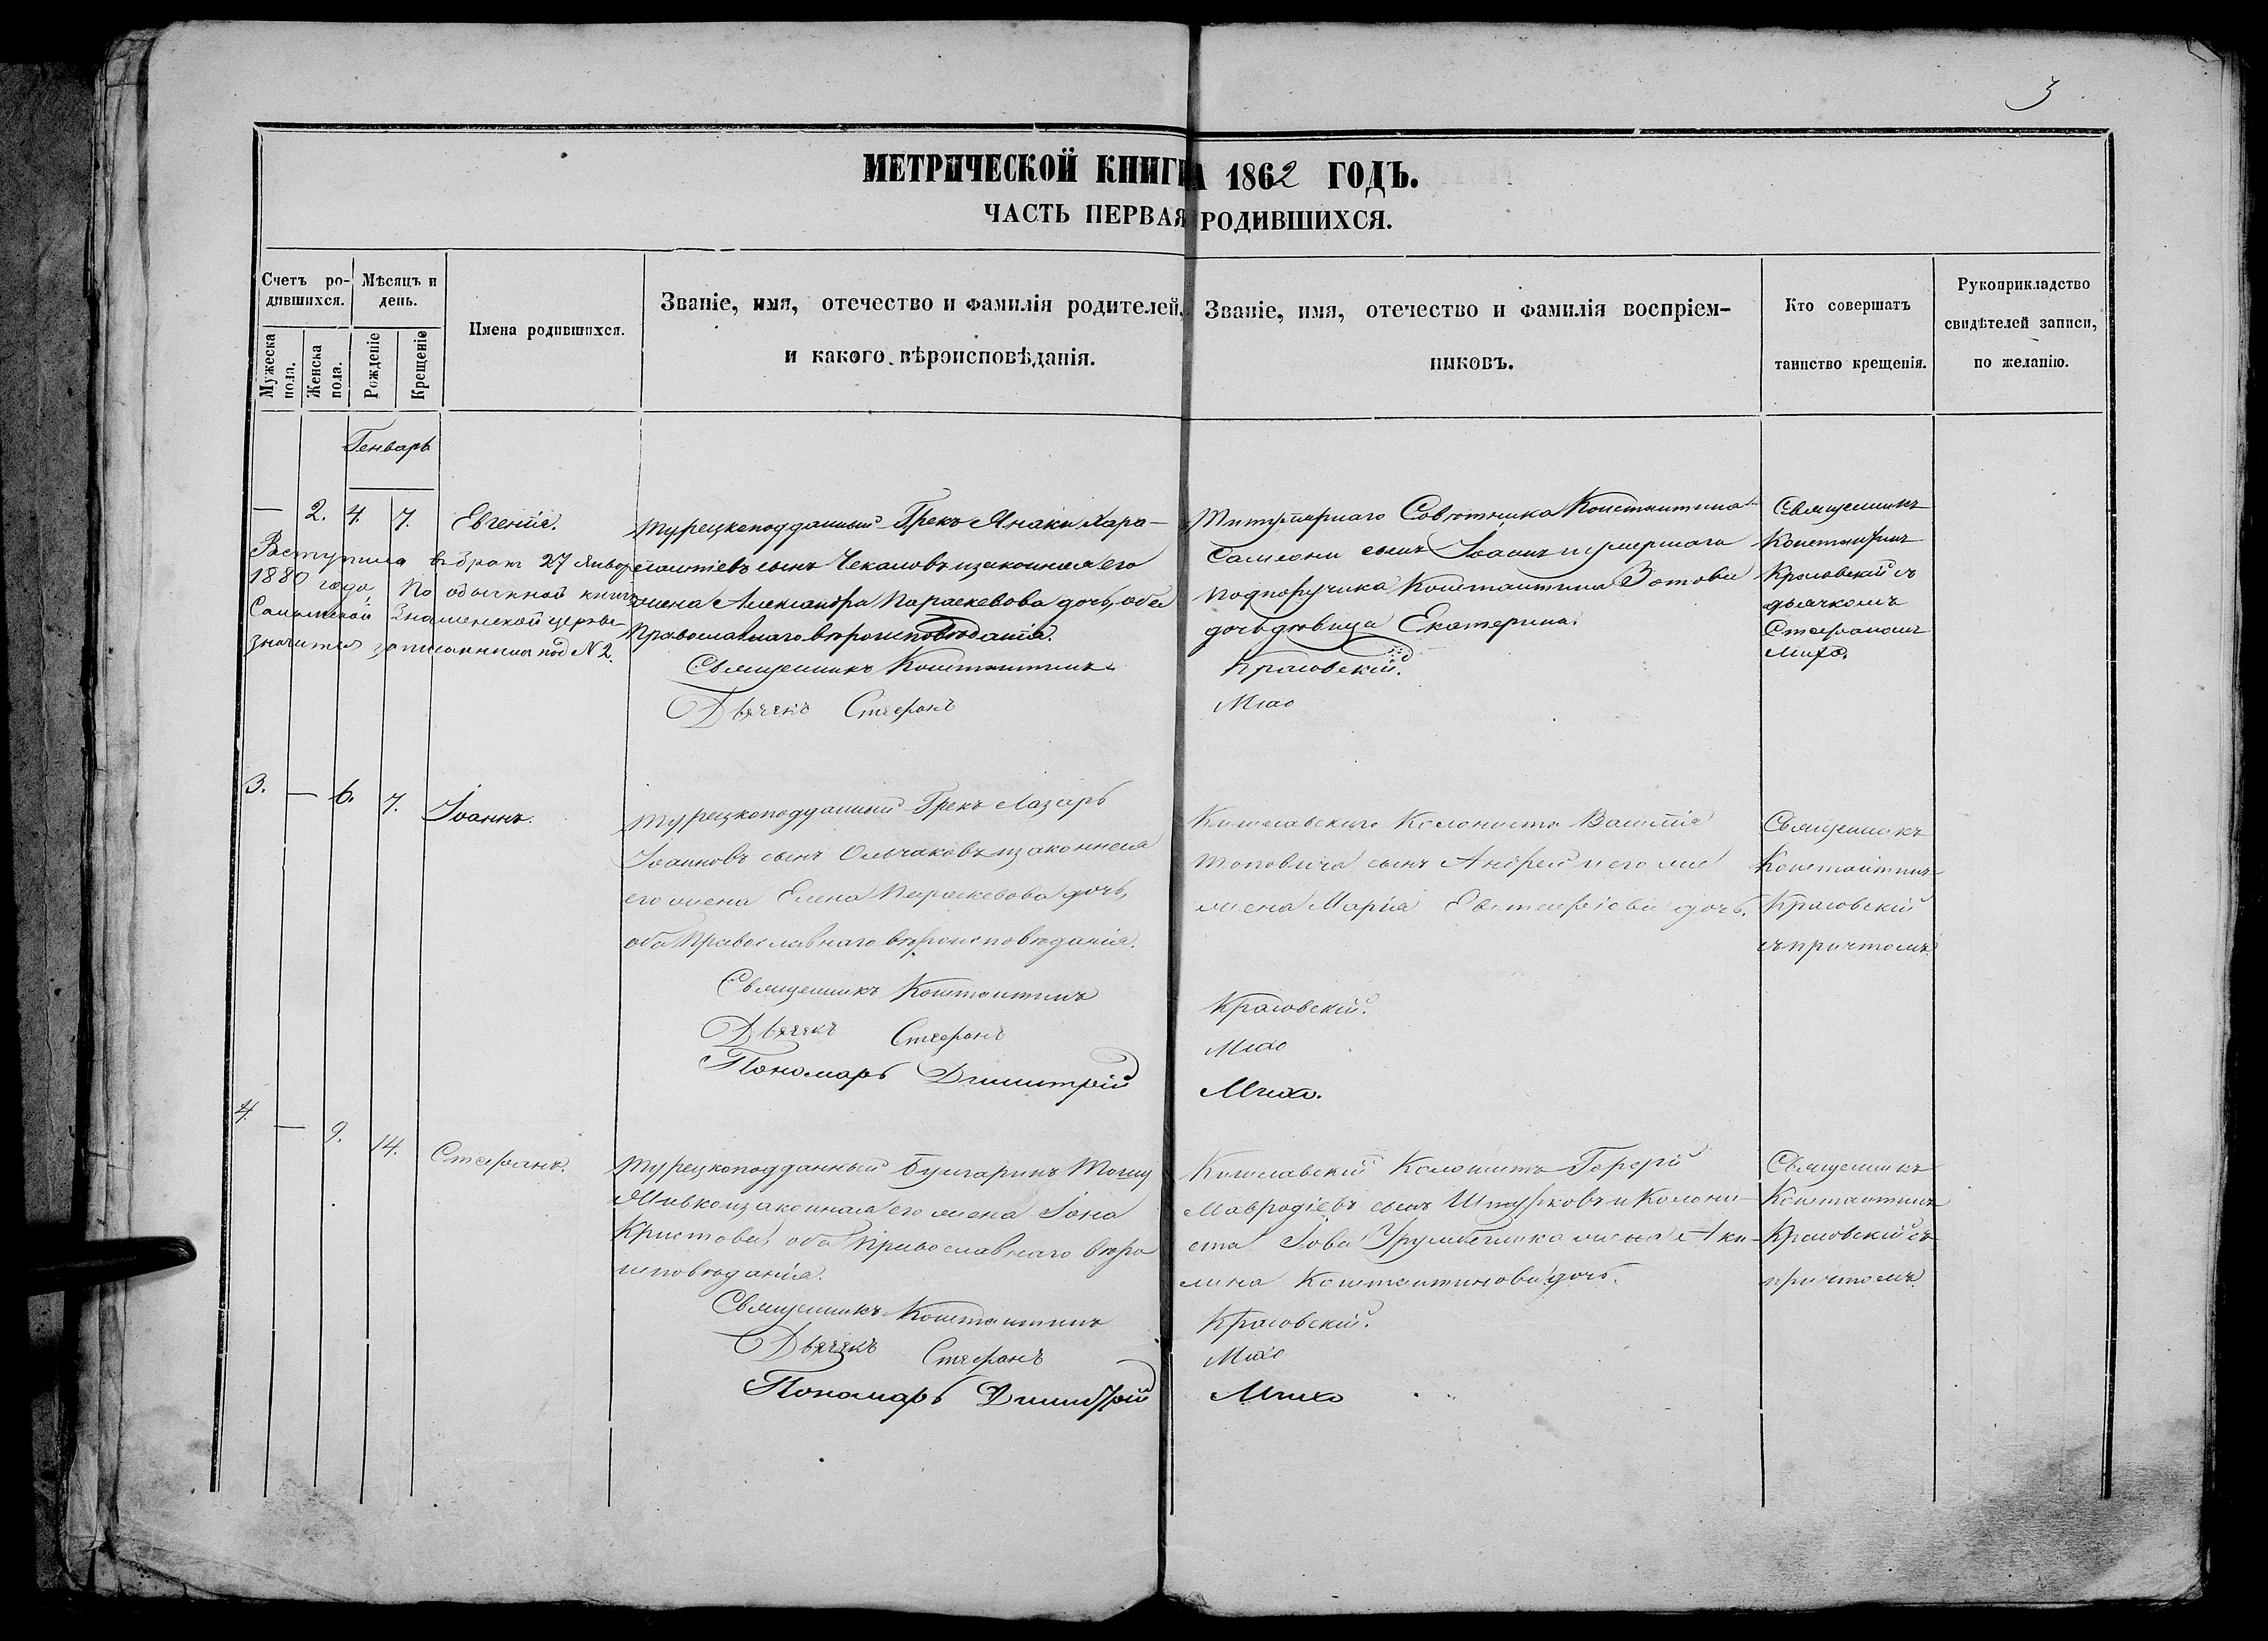 3
МЕТРИЧЕСКОЙ КНИГИ 1862 ГОДЪ.
ЧАСТЬ ПЕРВАЯ РОДИВШИХСЯ.
Счетъ ро-
дившихся.
Мужеска
пола.
Женска
пола.
Мѣсяцъ и
день.
Рожденіе
Крещеніе
Имена родившихся.
Званіе, имя, отечество и фамилія родителей,
и какого вѣроисповѣданія.
Званіе, имя, отечество и фамилія воспріем-
никовъ.
Кто совершатъ
таинство крещенія.
Рукоприкладство
свидѣтелей записи,
по желанію.
Генварь
— 2. 4. 7. Евгенія.
Вступила въ бракъ 27 Января
1880 года, По обыскной книгѣ
Знаменской церкви
значится записаннымъ под N 2.
Турецкоподданный Грекъ Янаки Хара-
лампіевъ сынъ Чекаловъ и законная его
жена Александра Параскевова дочь, оба
Православнаго вѣроисповѣданія.
Священникъ Константинъ
Дьячекъ Стефанъ
Титулярнаго Совѣтника Константина
сынъ Іоаннъ и умершаго
подпоручика Константина Зотова
дочь дѣвица Екатерина.
Красовскій.
Михо
Священникъ
Константинъ
Красовскій съ
дьячкомъ
Стефаномъ
Михо.
3. — 6. 7. Іоаннъ.
Турецкоподданный Грекъ Лазарь
Іоанновъ сынъ Ольчаковъ и законная
его жена Елена Параскевова дочь,
оба Православнаго вѣроисповѣданія.
Священникъ Константинъ
Дьячекъ Стефанъ
Пономарь Димитрій
Колониста Василія
Топовича сынъ Андрей и его же
жена Марія Евстафіева дочь.
Красовскій.
Михо
Михо.
Священникъ
Константинъ
Красовскій
съ причтомъ.
4. — 9. 14. Стефанъ.
Турецкоподданный Булгаринъ
и законная его жена Іона
Христова, оба Православнаго вѣро
исповѣданія.
Священникъ Константинъ
Дьячекъ Стефанъ
Пономарь Димитрій
Колонистъ
Мавродіевъ сынъ Штурковъ и Колони-
ста Іова жена Аки-
лина Константинова дочь.
Красовскій.
Михо
Михо
Священникъ
Константинъ
Красовскій съ
причтомъ.